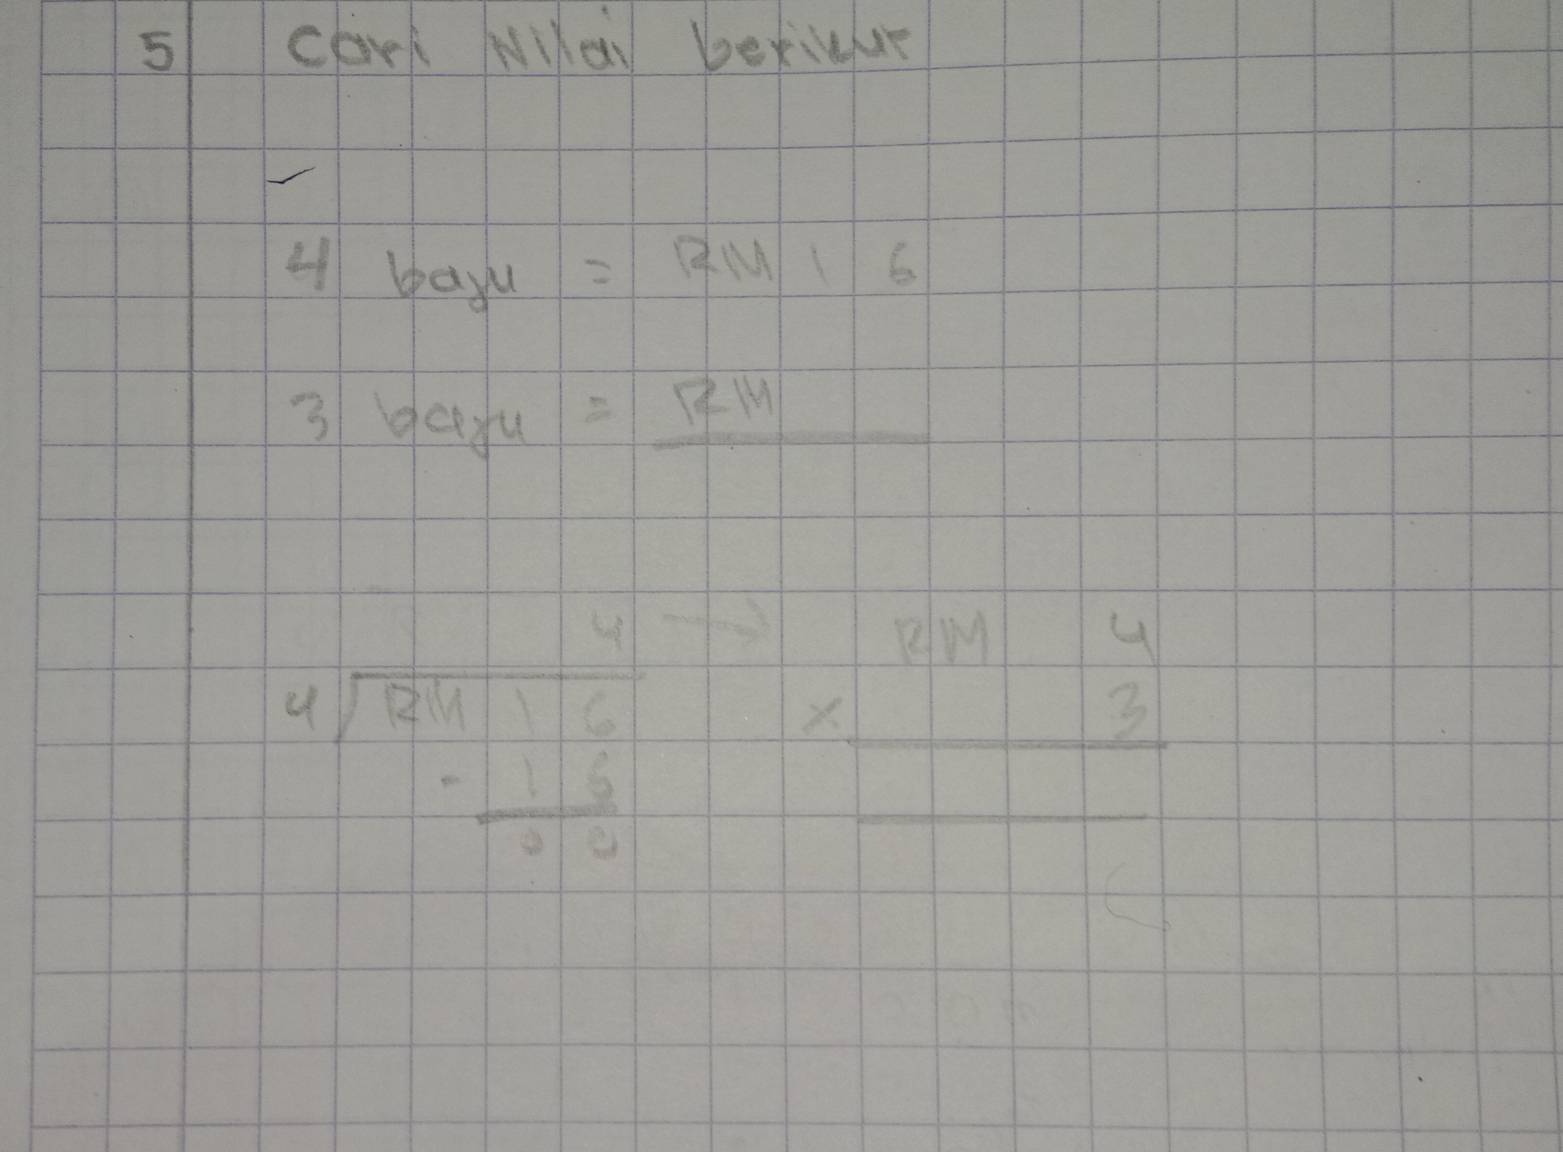 5 Cari Nilai berikut
4 baju = RM 1 6
3 baju = RM
4 → RM 4
4 RM 1 6 × 3
- 1 6
0 0